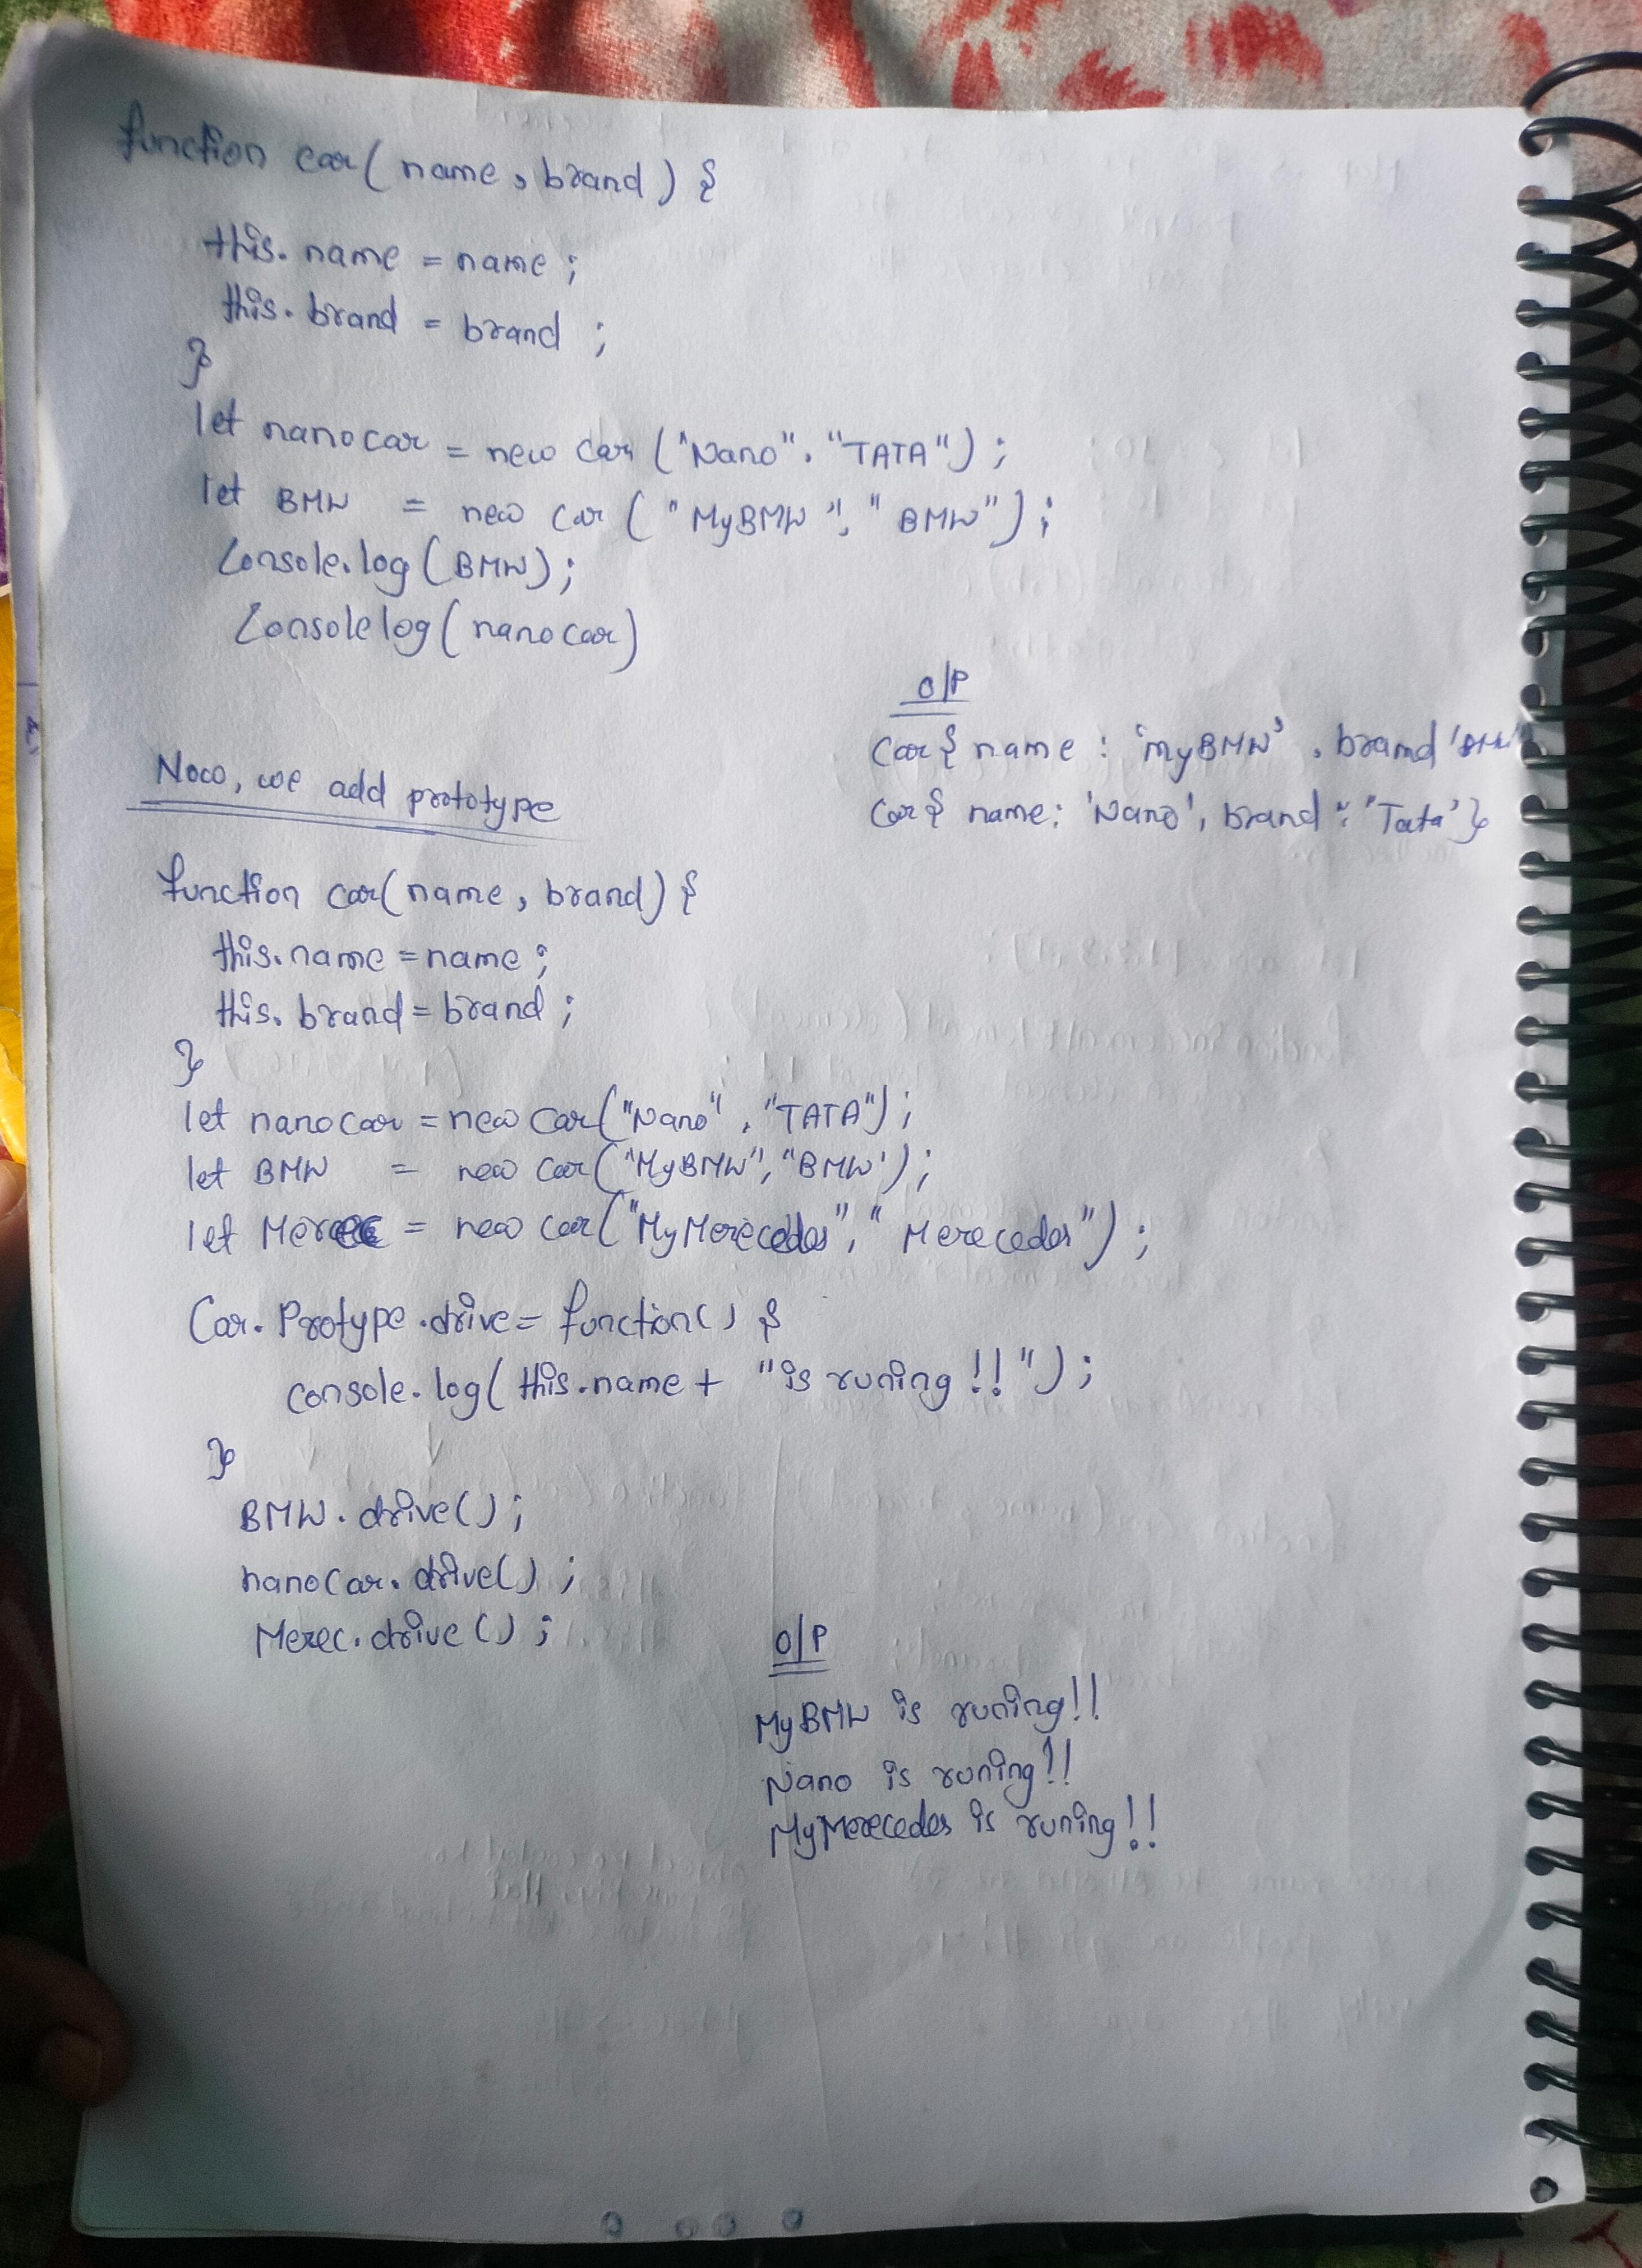 function car( name, brand) {
this. name = name ;
this. brand = brand ;
}
let nanocar = new car ("Nano", "TATA") ;
let BMW = new car ( "MyBMW", " BMW") ;
Console.log (BMW) ;
Console log ( nanocar)
O/P
Car { name : 'myBMW' , brand 'BMW'
Car { name: 'Nano', brand : 'Tata' }
Now, we add prototype
function car( name, brand) {
this.name = name ;
this. brand = brand ;
}
let nanocar = new car("Nano" , "TATA") ;
let BMW = new car ("MyBMW", "BMW') ;
let Merec = new car ("MyMerecedes", " Merecedes") ;
Car. Protype .drive = function() {
console. log( this.name + "is runing !! ") ;
}
BMW. drive() ;
nanocar. drive() ;
Merec. drive () ;
O/P
MyBMW is runing!!
Nano is runing!!
MyMerecedes is runing!!